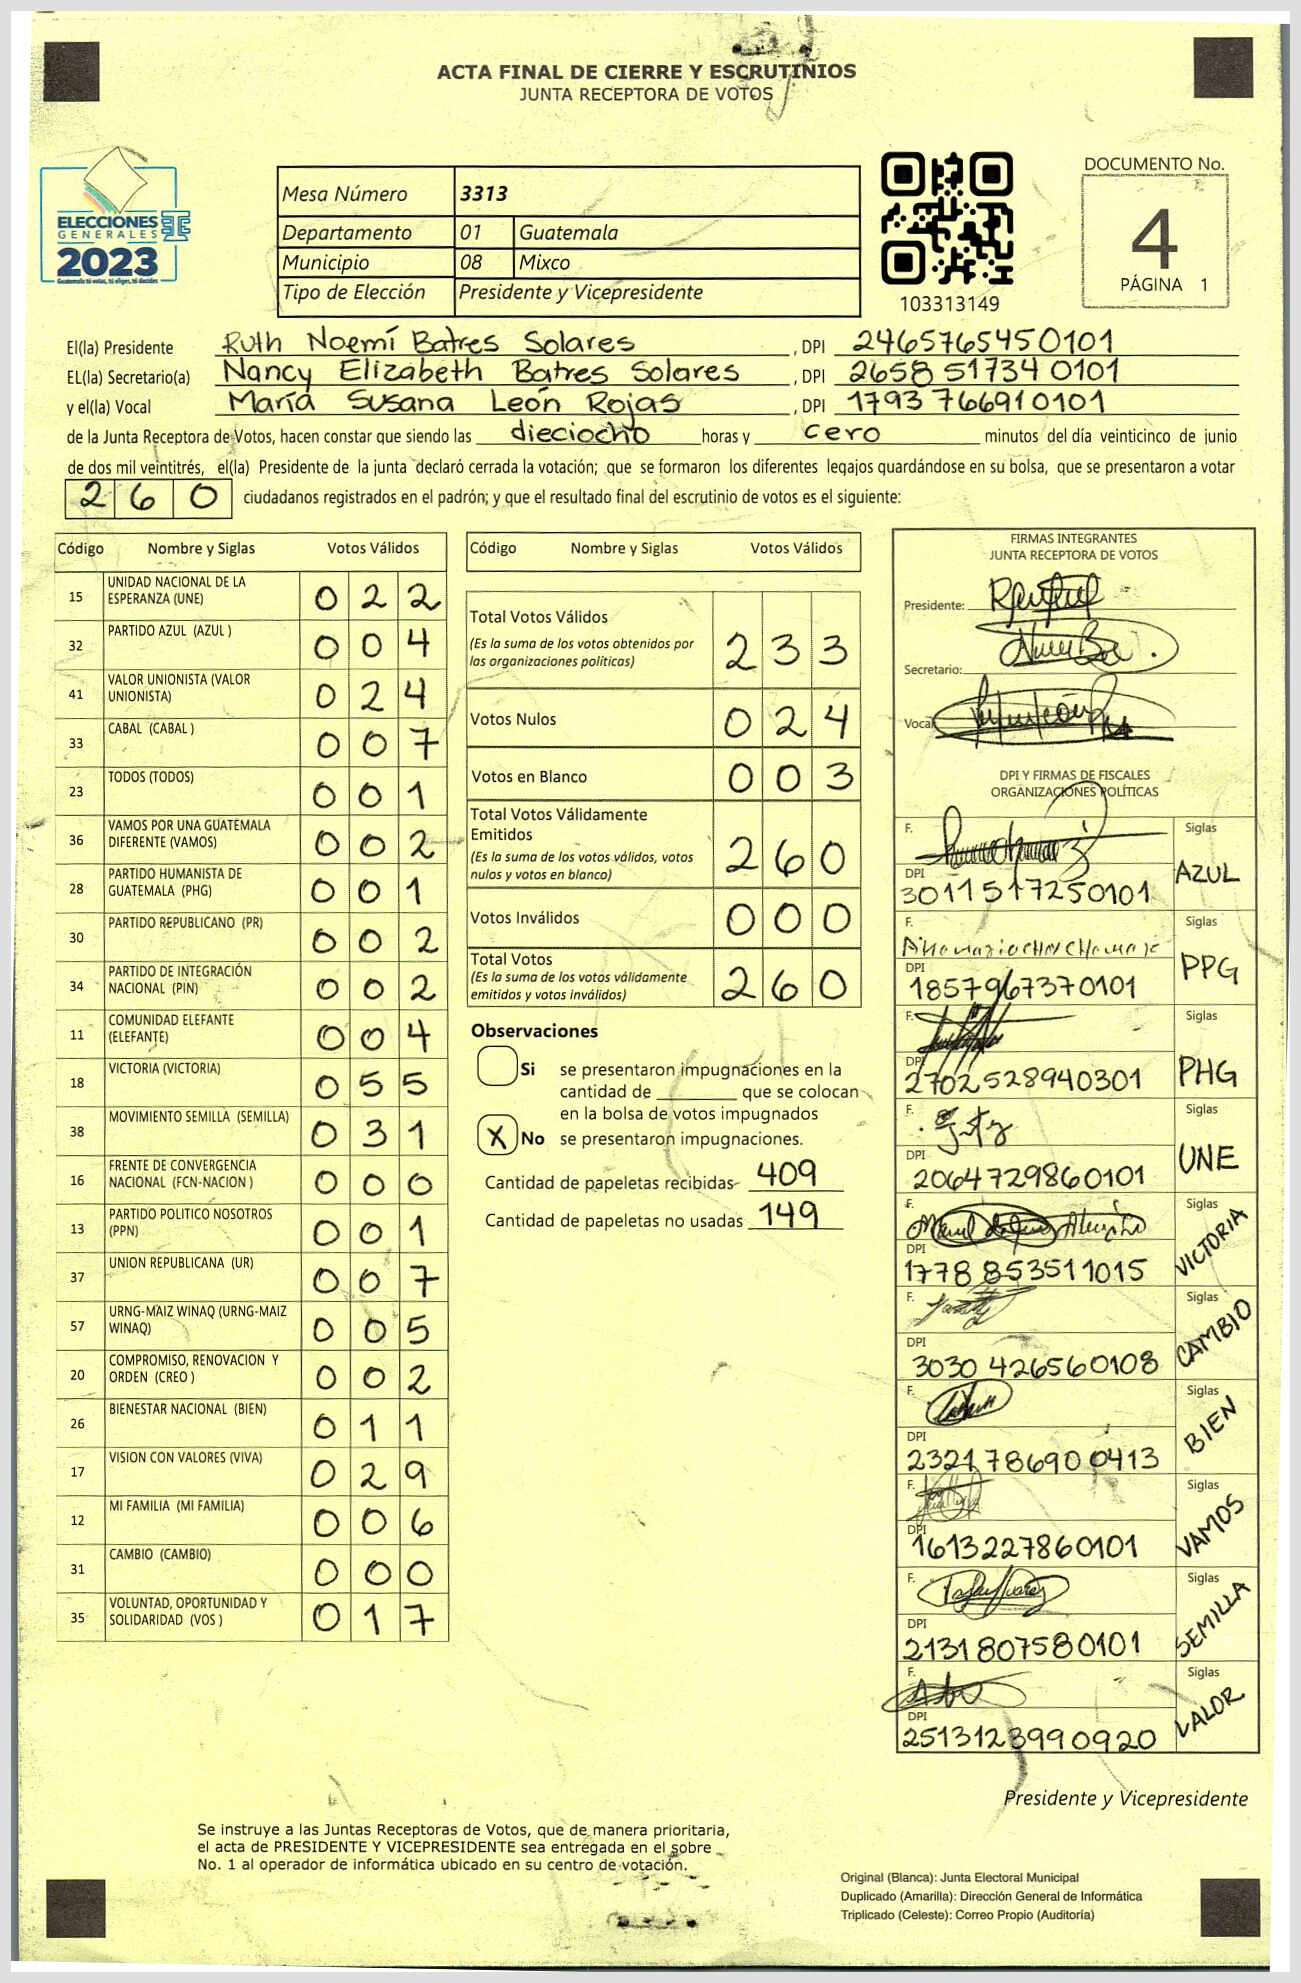 ACTA FINAL DE CIERRE Y ESCRUTINIOS
JUNTA RECEPTORA DE VOTOS
ELECCIONES
GENERALES
2023
Guatemala tú votas, tú eliges, tú decides
Mesa Número 3313
Departamento 01 Guatemala
Municipio 08 Mixco
Tipo de Elección Presidente y Vicepresidente
103313149
DOCUMENTO No.
4
PÁGINA 1
El(la) Presidente Ruth Noemí Batres Solares , DPI 2465765450101
EL(la) Secretario(a) Nancy Elizabeth Batres Solares , DPI 2658 51734 0101
y el(la) Vocal María Susana León Rojas , DPI 1793 766910101
de la Junta Receptora de Votos, hacen constar que siendo las dieciocho horas y cero minutos del día veinticinco de junio
de dos mil veintitrés, el(la) Presidente de la junta declaró cerrada la votación; que se formaron los diferentes legajos guardándose en su bolsa, que se presentaron a votar
260 ciudadanos registrados en el padrón; y que el resultado final del escrutinio de votos es el siguiente:
Código Nombre y Siglas Votos Válidos
15 UNIDAD NACIONAL DE LA ESPERANZA (UNE) 022
32 PARTIDO AZUL (AZUL ) 004
41 VALOR UNIONISTA (VALOR UNIONISTA) 024
33 CABAL (CABAL ) 007
23 TODOS (TODOS) 001
36 VAMOS POR UNA GUATEMALA DIFERENTE (VAMOS) 002
28 PARTIDO HUMANISTA DE GUATEMALA (PHG) 001
30 PARTIDO REPUBLICANO (PR) 002
34 PARTIDO DE INTEGRACIÓN NACIONAL (PIN) 002
11 COMUNIDAD ELEFANTE (ELEFANTE) 004
18 VICTORIA (VICTORIA) 055
38 MOVIMIENTO SEMILLA (SEMILLA) 031
16 FRENTE DE CONVERGENCIA NACIONAL (FCN-NACION ) 000
13 PARTIDO POLITICO NOSOTROS (PPN) 001
37 UNION REPUBLICANA (UR) 007
57 URNG-MAIZ WINAQ (URNG-MAIZ WINAQ) 005
20 COMPROMISO, RENOVACION Y ORDEN (CREO ) 002
26 BIENESTAR NACIONAL (BIEN) 011
17 VISION CON VALORES (VIVA) 029
12 MI FAMILIA (MI FAMILIA) 006
31 CAMBIO (CAMBIO) 000
35 VOLUNTAD, OPORTUNIDAD Y SOLIDARIDAD (VOS ) 017
Código Nombre y Siglas Votos Válidos
Total Votos Válidos
(Es la suma de los votos obtenidos por las organizaciones políticas) 233
Votos Nulos 024
Votos en Blanco 003
Total Votos Válidamente Emitidos
(Es la suma de los votos válidos, votos nulos y votos en blanco) 260
Votos Inválidos 000
Total Votos
(Es la suma de los votos válidamente emitidos y votos inválidos) 260
Observaciones
Si se presentaron impugnaciones en la
cantidad de ________ que se colocan
en la bolsa de votos impugnados
X No se presentaron impugnaciones.
Cantidad de papeletas recibidas 409
Cantidad de papeletas no usadas 149
FIRMAS INTEGRANTES
JUNTA RECEPTORA DE VOTOS
Presidente:
Secretario:
Vocal
DPI Y FIRMAS DE FISCALES
ORGANIZACIONES POLÍTICAS
F. Siglas
DPI 3011517250101 AZUL
F. Siglas
DPI 1857967370101 PPG
F. Siglas
DPI 2702528940301 PHG
F. Siglas
DPI 2064729860101 UNE
F. Siglas
DPI 1778 853511015 VICTORIA
F. Siglas
DPI 3030 426560108 CAMBIO
F. Siglas
DPI 2321 786900413 BIEN
F. Siglas
DPI 1613227860101 VAMOS
F. Siglas
DPI 2131807580101 SEMILLA
F. Siglas
DPI 2513123990920 VALOR
Presidente y Vicepresidente
Se instruye a las Juntas Receptoras de Votos, que de manera prioritaria,
el acta de PRESIDENTE Y VICEPRESIDENTE sea entregada en el sobre
No. 1 al operador de informática ubicado en su centro de votación.
Original (Blanca): Junta Electoral Municipal
Duplicado (Amarilla): Dirección General de Informática
Triplicado (Celeste): Correo Propio (Auditoría)